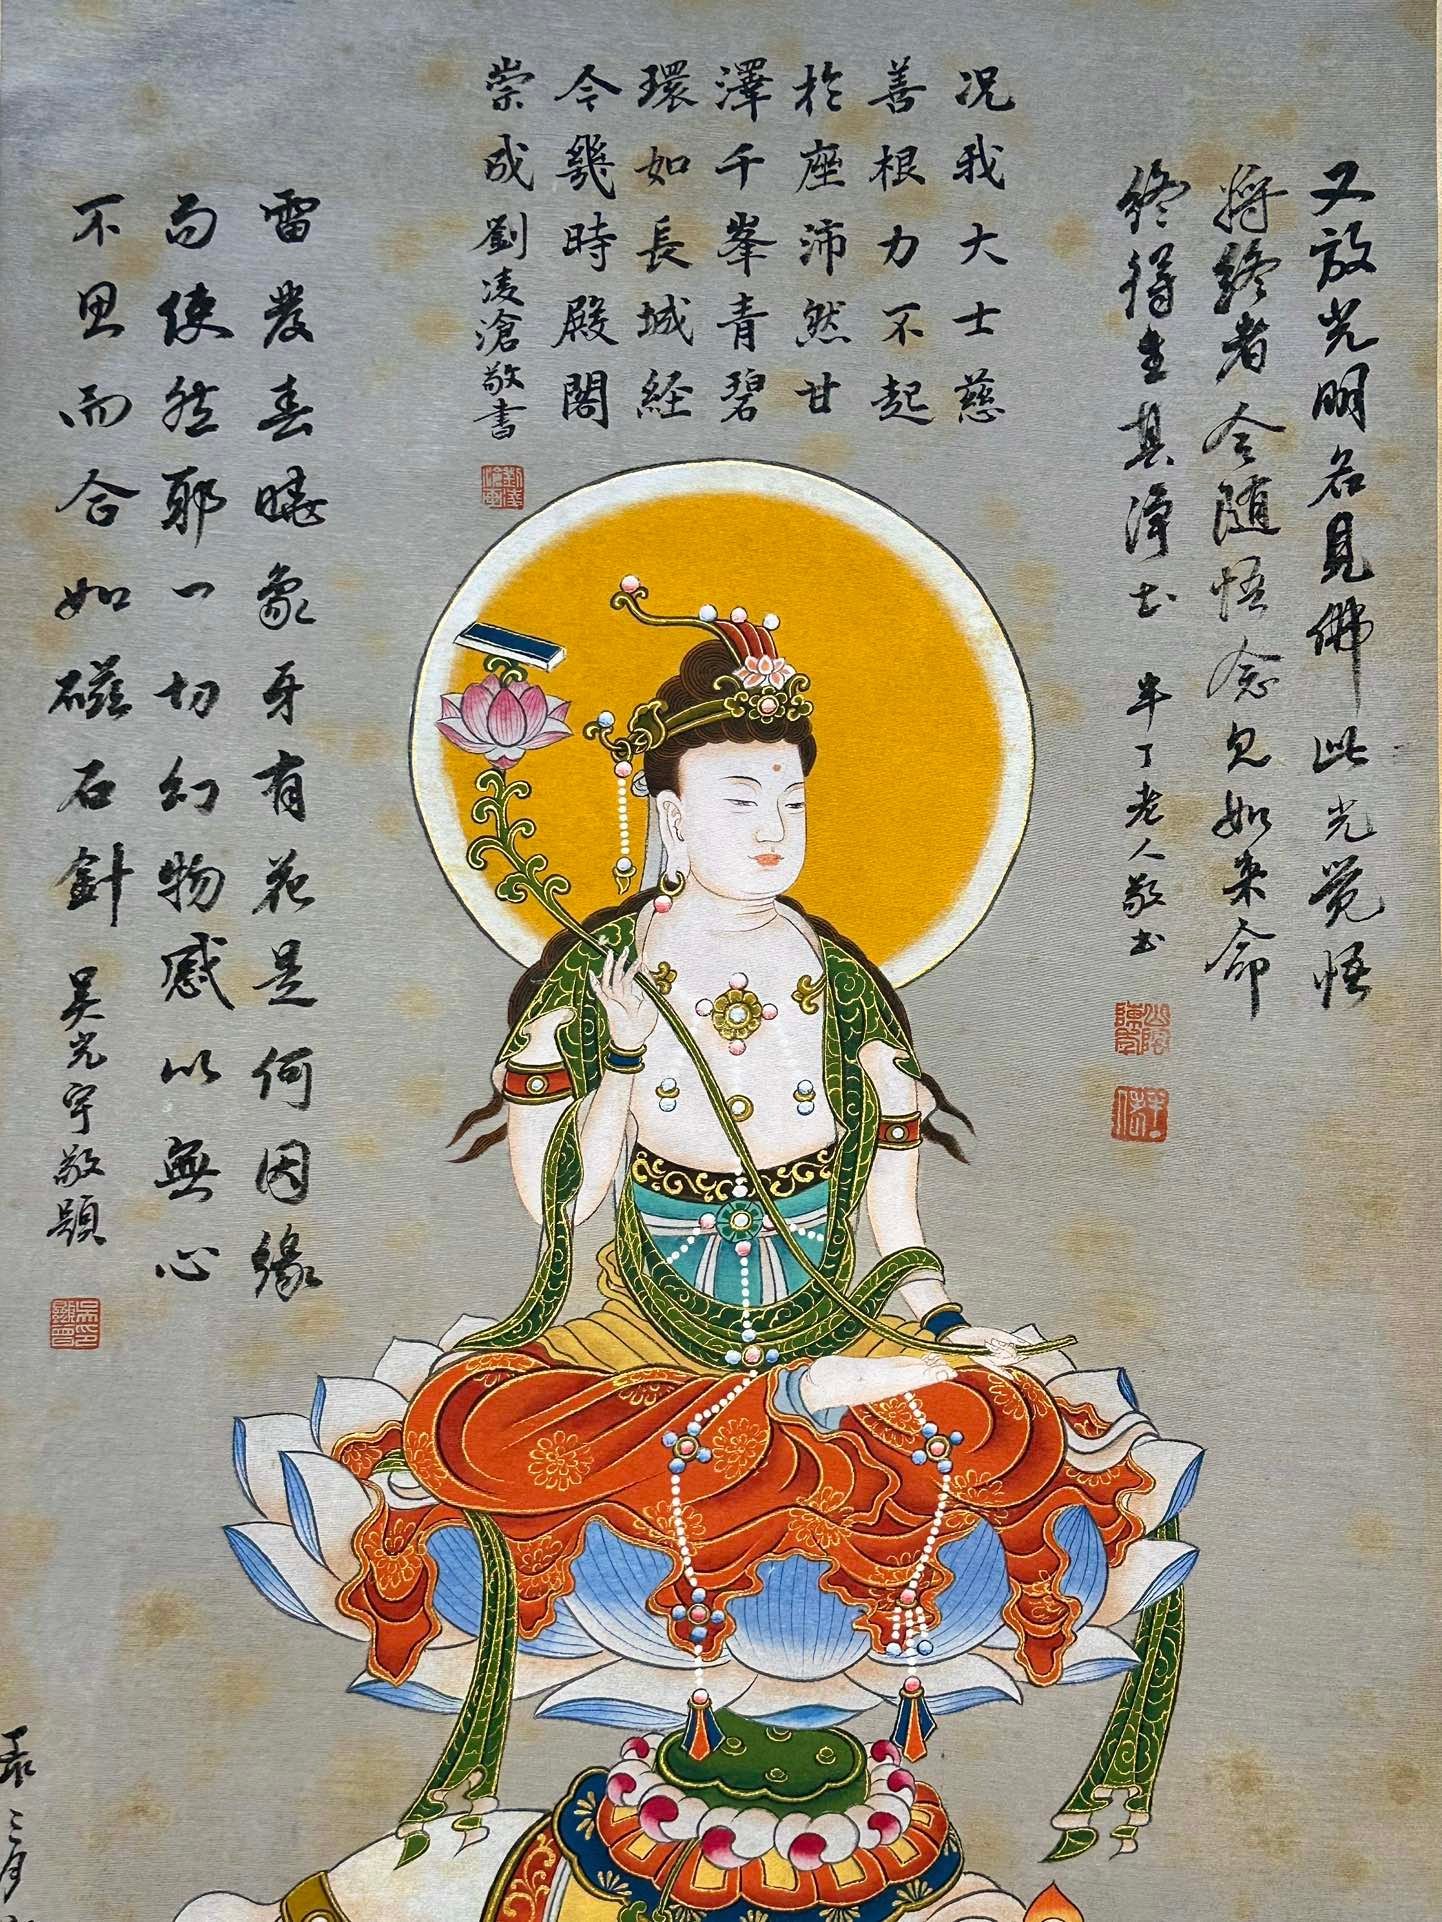 又放光明名見佛此光覺悟
將終者令随悟念見如来命
終得生其淨土 半丁老人敬书
况我大士慈
善根力不起
於座沛然甘
澤千峯青碧
環如長城経
今幾時殿閣
崇成劉凌滄敬書
雷發春曉象牙有花是何因緣
而使然耶一切幻物感以無心
不思而合如磁石針 吴光宇敬題
三月